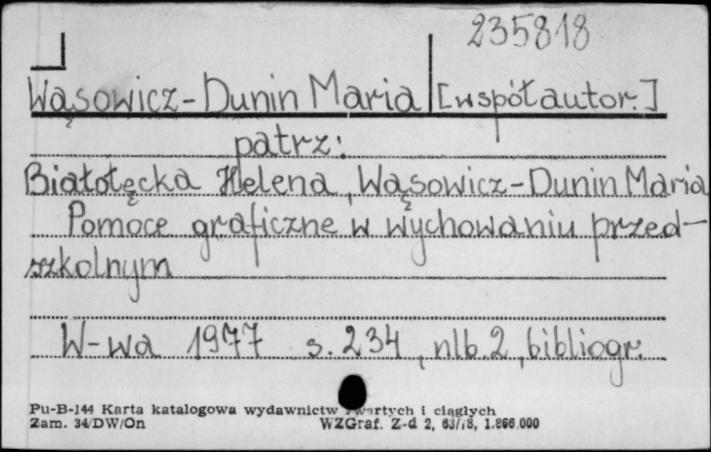 235818
Wąsowicz-Dunin Maria [współautor.]
patrz:
Białołęcka Helena, Wąsowicz-Dunin Maria
Pomoce graficzne w wychowaniu przed-
szkolnym
W-wa 1977 s. 234, nlb. 2, bibliogr.
Pu-B-144 Karta katalogowa wydawnictw zwartych i ciągłych
Zam. 34/DW/On WZGraf. Z-d 2, 63/78, 1.866.000